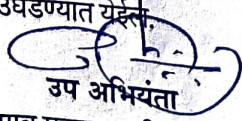 उघडण्यात येईल.
उप अभियंता